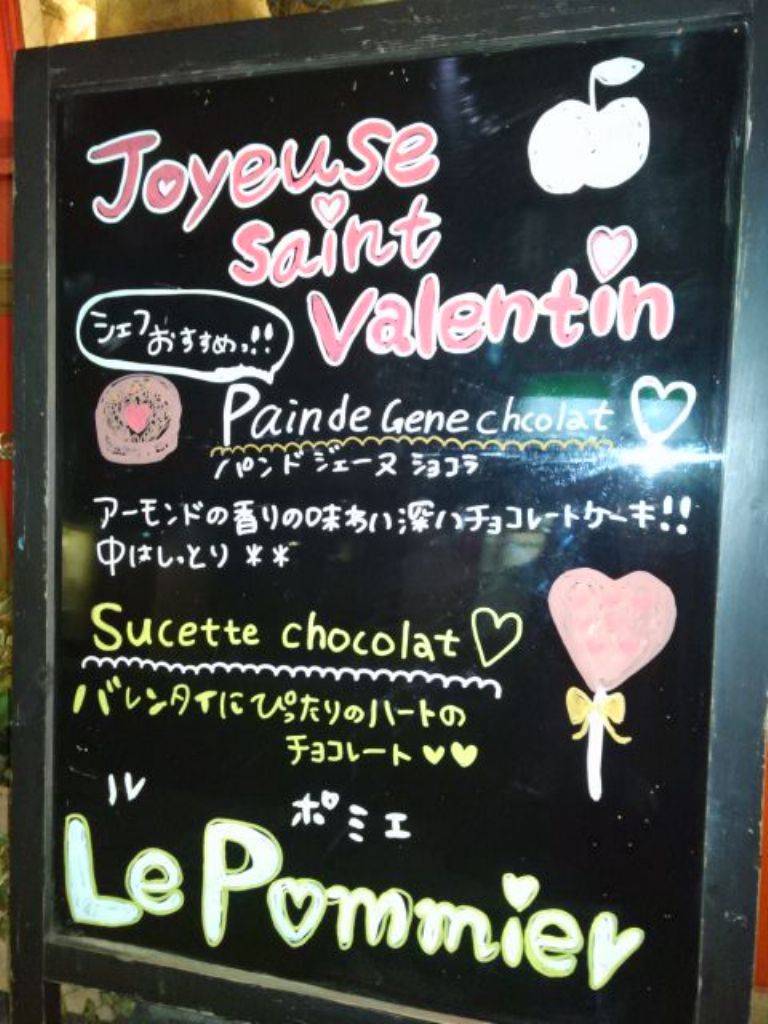 Joyeuse
saint
Valentin
シェフ
おすすめっ!!
Pain de Gene chcolat
パンドジェーヌ ショコラ
アーモンドの香りの味わい深いチョコレートケーキ!!
中はしっとり **
Sucette chocolat
バレンタイにぴったりのハートの
チョコレート
ル ポミエ
Le Pommier